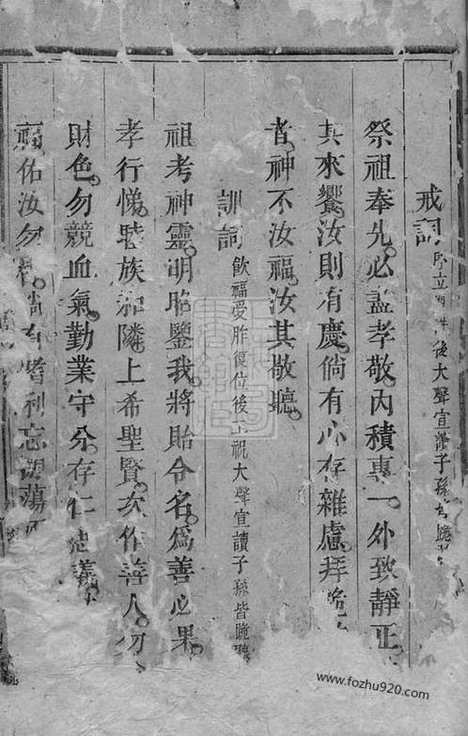 戒詞 後大聲宣讀子孫皆聽
祭祖奉先必盡孝敬內積專一外致靜正
其來饗汝則有慶倘有心存雜慮拜跪
者神不汝福汝其敬聽
訓詞 飲福受胙復位後 祝大聲宣讀子孫皆跪聽
祖考神靈明昭鑒我將貽令名為善必果
孝行悌睦族和隣上希聖賢次作善人勿
財色勿競血氣勤業守分存仁 義
福佑汝勿 忘 蕩
www.fozhu920.com